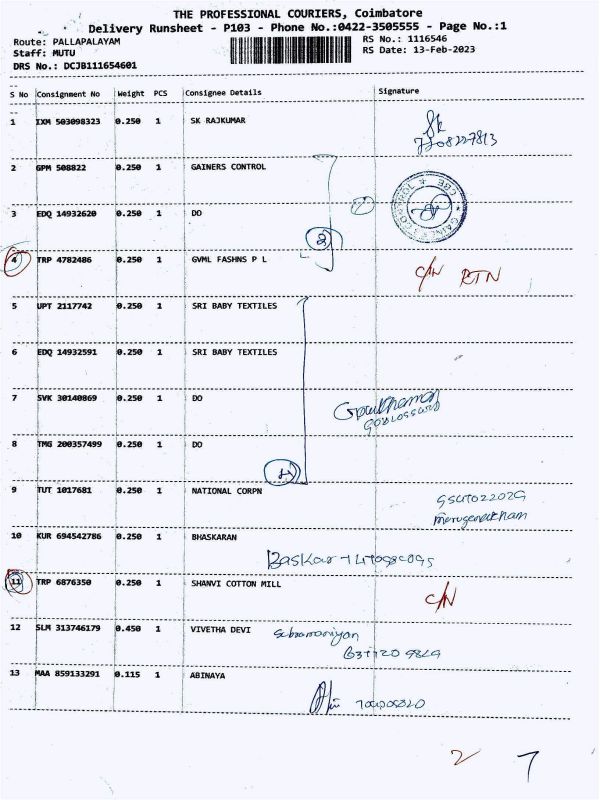 THE PROFESSIONAL COURIERS, Coimbatore
Delivery Runsheet - P103 - Phone No.:0422-3505555 - Page No.:1
Route: PALLAPALAYAM RS No.: 1116546
Staff: MUTU RS Date: 13-Feb-2023
DRS No.: DCJB111654601
S No Consignment No Weight PCS Consignee Details Signature
1 IXM 503098323 0.250 1 SK RAJKUMAR
2 GPM 508822 0.250 1 GAINERS CONTROL
3 EDQ 14932620 0.250 1 DO
4 TRP 4782486 0.250 1 GVML FASHNS P L C/N RTN
5 UPT 2117742 0.250 1 SRI BABY TEXTILES
6 EDQ 14932591 0.250 1 SRI BABY TEXTILES
7 SVK 30140869 0.250 1 DO
8 TMG 200357499 0.250 1 DO
9 TUT 1017681 0.250 1 NATIONAL CORPN
10 KUR 694542786 0.250 1 BHASKARAN
Baskar
11 TRP 6876350 0.250 1 SHANVI COTTON MILL C/N
12 SLM 313746179 0.450 1 VIVETHA DEVI Subramaniyan
13 MAA 859133291 0.115 1 ABINAYA
2 7